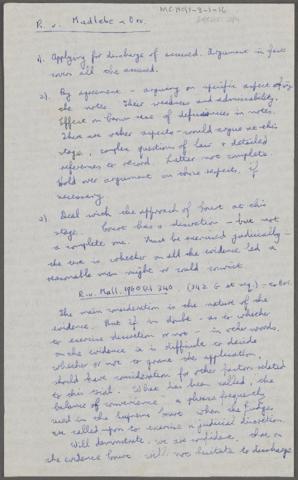 R. v. Madlebe & Ors.
MCH91-3-1-16
1). Applying for discharge of accused. Argument in fact
covers all the accused.
2). By agreement - arguing on specific aspect of
the notes. Their weakness and admissibility.
Effect on bona case of deficiencies in notes.
There are other aspects - would argue at this
stage, complex question of law & detailed
references to record. Latter not complete.
Hold over argument on those respects, if
necessary.
3). Deal with the approach of Court at this
stage. Court has a discretion - but not
a complete one. Must be exercised judicially -
the one is whether on all the evidence led a
reasonable man might or could convict.
R. v. Mall. 1960(2) 340. (342 G et seq.) -
The main consideration is the nature of the
evidence. But if in doubt - as to whether
to exercise discretion or not - in other words,
on the evidence it is difficult to decide
whether or not to grant the application,
should have consideration for other factors related
to this trial. What has been called, the
balance of convenience - a phrase frequently
used in the Supreme Court when the Judges
are called upon to exercise a judicial discretion.
Will demonstrate, we are confident, that on
the evidence Court will not hesitate to discharge